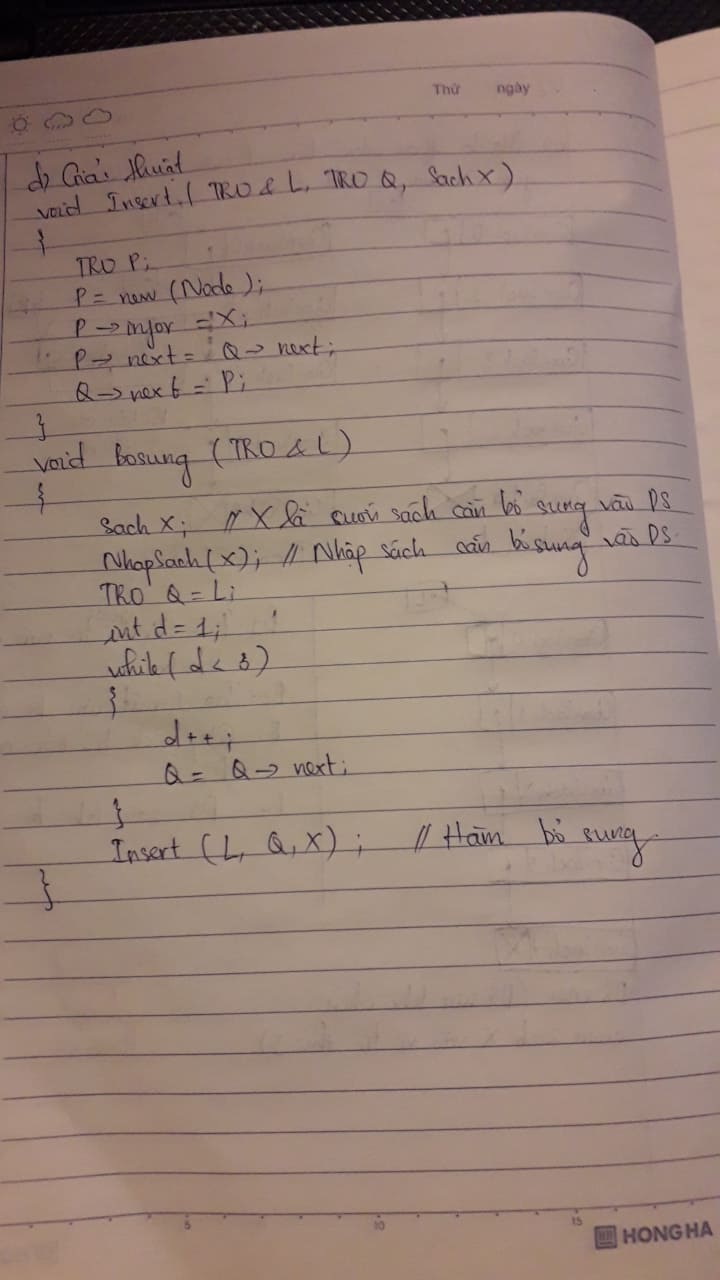 Thứ ngày
d) Giải thuật
void Insert ( TRO & L, TRO Q, Sach X )
{
TRO P;
P = new (Node);
P → infor = X;
P → next = Q → next;
Q → next = P;
}
void bosung (TRO & L)
{
Sach X; // X là cuốn sách cần bổ sung vào DS
NhapSach(X); // Nhập sách cần bổ sung vào DS.
TRO Q = L;
int d = 1;
while ( d < 3 )
{
d++;
Q = Q → next;
}
Insert (L, Q, X); // Hàm bổ sung.
}
5 10 15
HONG HA